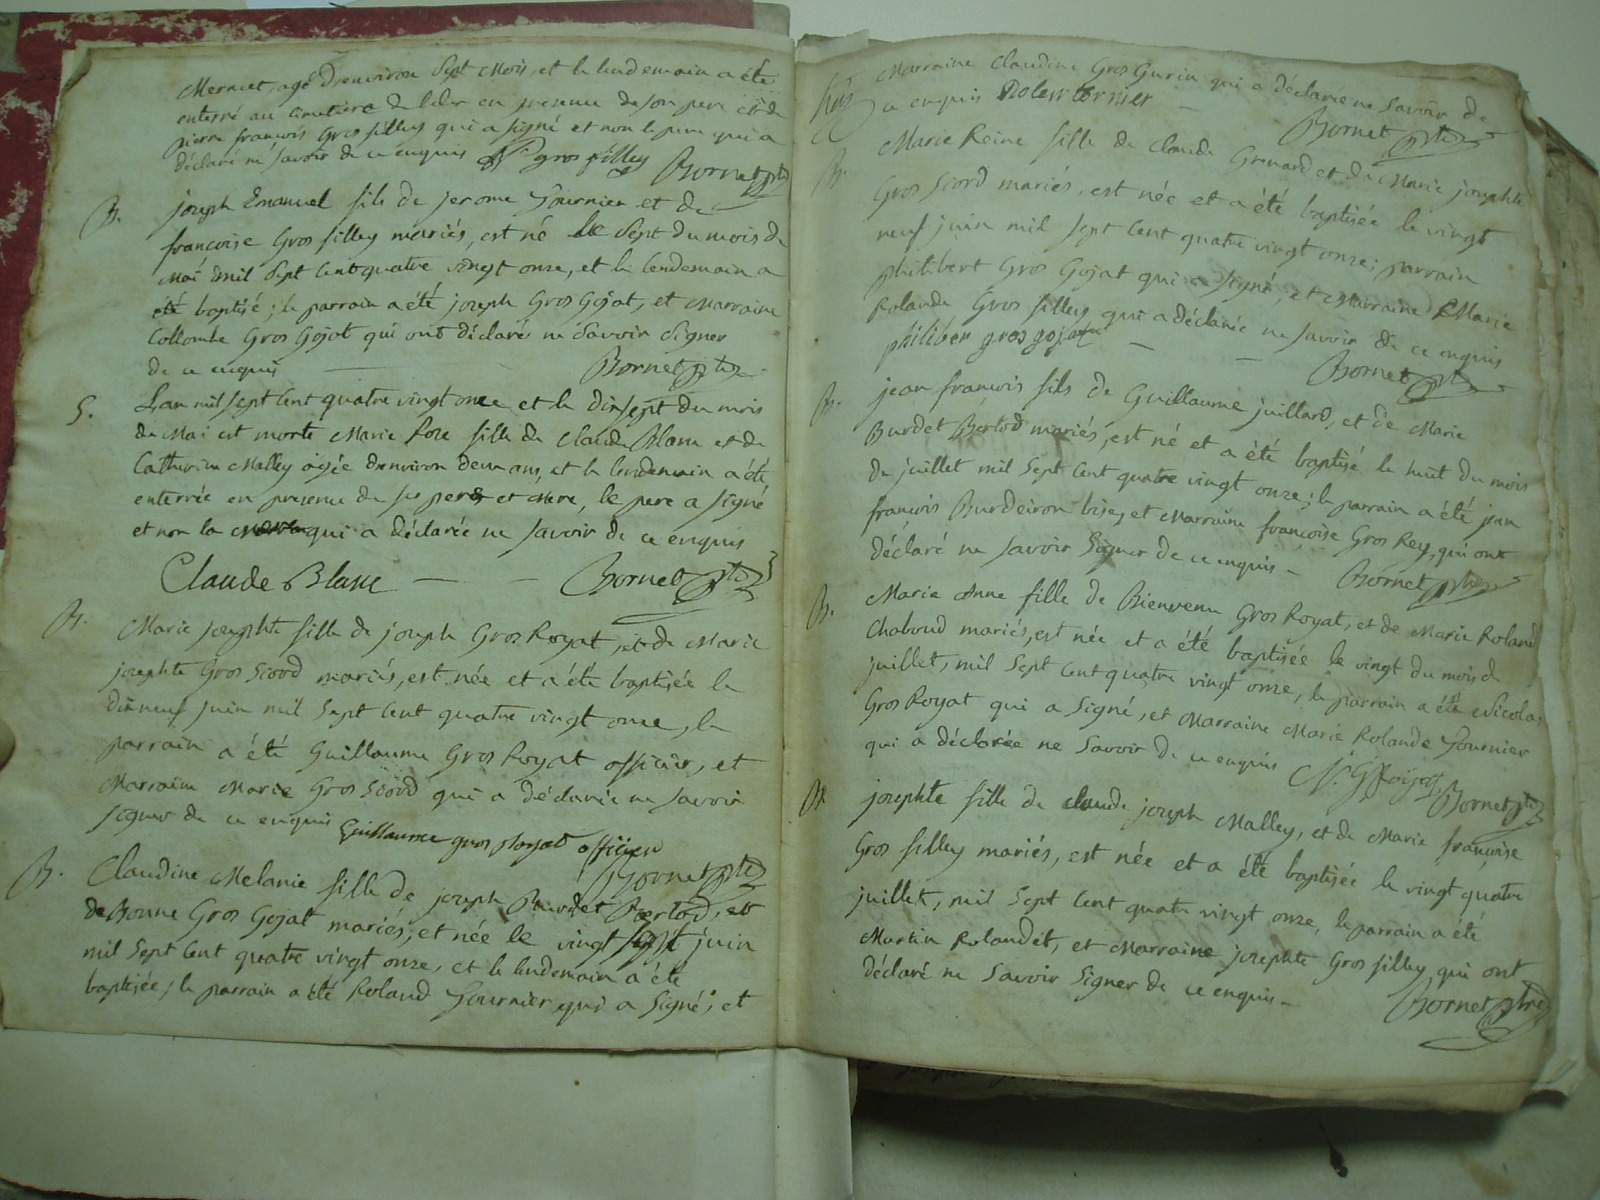 Mermet, agé d'environ Sept Mois, et le lendemain a été
enterré au Cimetiere de en presence de son pere et de
pierre françois Gros filley qui a signé et non le pere qui a
déclaré ne savoir de ce enquis gros filley Bornet ptre
B. joseph Emanuel fils de jerome Fournier et de
francoise Gros filley mariés, est né le Sept du mois de
Mai mil Sept Cent quatre vingt onze, et le lendemain a
été baptisé; le parrain a été joseph Gros Gojat, et Marraine
Collombe Gros Gojat qui ont déclaré ne Savoir Signer
de ce enquis — Bornet ptre
S. L'an mil sept Cent quatre vingt onze et le dix sept du mois
de Mai est morte Marie Rose fille de Claude Blanc et de
Catherine Malley agée d'environ deux ans, et le lendemain a été
enterrée en presence de ses pere et Mere, le pere a signé
et non la qui a déclarée ne savoir de ce enquis
Claude Blanc — — Bornet ptre
B. Marie josephte fille de joseph Gros Royat, et de Marie
josephte Gros Sciord mariés, est née et a été baptisée le
dixneuf juin mil Sept Cent quatre vingt onze, le
parrain a été Guillaume Gros Royat officier, et
Marraine Marie Gros Sciord qui a déclarée ne savoir
signer de ce enquis Guillaume gros royat officier
Bornet ptre
B. Claudine Melanie fille de joseph Burdet Bertod, et
de Bonne Gros Gojat mariés, et née le vingt sept juin
mil Sept Cent quatre vingt onze, et le lendemain a été
baptisée; le parrain a été Roland Fournier qui a Signé; et
Marraine Claudine Gros Gurin qui a déclarée ne Savoir de
ce enquis Rolen fornier — Bornet ptre
B. Marie Reine fille de Claude Grenard et de Marie josephte
Gros Sciord mariés, est née et a été baptisée le vingt
neuf juin mil Sept Cent quatre vingt onze; parrain
philibert Gros Gojat qui a signé, et Marraine Marie
Rolande Gros filley qui a déclarée ne savoir de ce enquis
philiber gros gojat — — Bornet ptre
B. jean francois fils de Guillaume juillard, et de Marie
Burdet Bertod mariés, est né et a été baptisé le huit du mois
de juillet mil Sept Cent quatre vingt onze; le parrain a été jean
francois Burdeiron bise, et Marraine françoise Gros Rey, qui ont
déclaré ne savoir Signer de ce enquis — Bornet ptre
B. Marie Anne fille de Bienvenu Gros Royat, et de Marie Roland
Chaboud mariés, est née et a été baptisée le vingt du mois d
juillet, mil Sept Cent quatre vingt onze, le parrain a été Nicolas
Gros Royat qui a Signé, et Marraine Marie Rolande Fournier
qui a déclarée ne Savoir de ce enquis Bornet ptre
B. josephte fille de claude joseph Malley, et de Marie françoise
Gros filley mariés, est née et a été baptisée le vingt quatre
juillet, mil Sept Cent quatre vingt onze, le parrain a été
Martin Rolandet, et Marraine josephte Gros filley, qui ont
déclaré ne Savoir Signer de ce enquis —
Bornet ptre